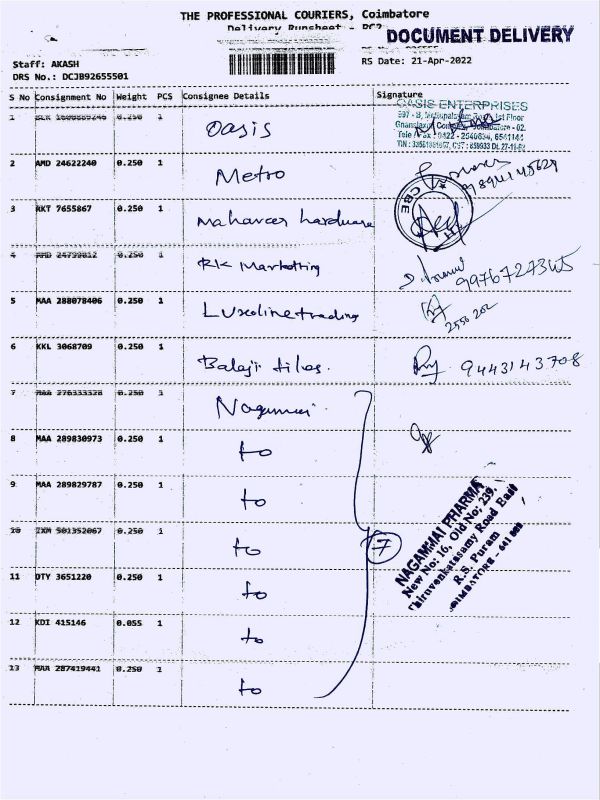 THE PROFESSIONAL COURIERS, Coimbatore
Delivery Runsheet -
DOCUMENT DELIVERY
Staff: AKASH
DRS No.: DCJB92655501
RS Date: 21-Apr-2022
S No Consignment No Weight PCS Consignee Details Signature
1 0.250 1 Oasis
OASIS ENTERPRISES
1st Floor
2 AMD 24622240 0.250 1 Metro
3 RKT 7655867 0.250 1 Mahaveer hardware
CBE
4 AMD 24799812 0.250 1 RK Marketting 9976727345
5 MAA 288078406 0.250 1 Luxoline trading 2550 202
6 KKL 3068709 0.250 1 Balaji tiles. 9443143708
7 MAA 276333328 0.250 1 Nagamai
8 MAA 289830973 0.250 1 to
9 MAA 289829787 0.250 1 to
10 IXM 501352067 0.250 1 to
7
11 DTY 3651220 0.250 1 to
12 KDI 415146 0.055 1 to
13 MAA 287419441 0.250 1 to
NAGAMMAI PHARMA
New No: 16, Old No: 239,
Thiruvenkatasamy Road East
R.S. Puram
COIMBATORE - 641 002